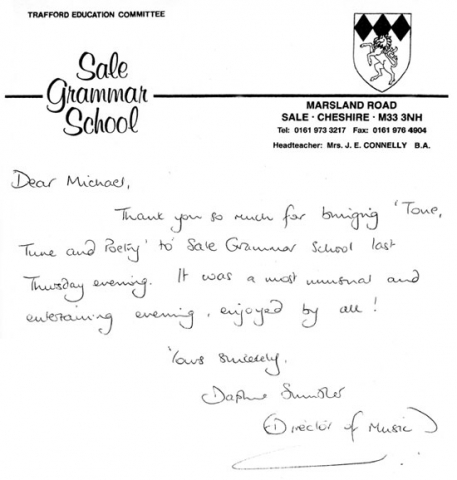 TRAFFORD EDUCATION COMMITTEE
Sale
Grammar
School
MARSLAND ROAD
SALE · CHESHIRE · M33 3NH
Tel: 0161 973 3217 Fax: 0161 976 4904
Headteacher: Mrs. J. E. CONNELLY B.A.
Dear Michael,
Thank you so much for bringing 'Tone,
Tune and Poetry' to Sale Grammar School last
Thursday evening. It was a most unusual and
entertaining evening, enjoyed by all!
Yours sincerely,
Daphne
(Director of Music)